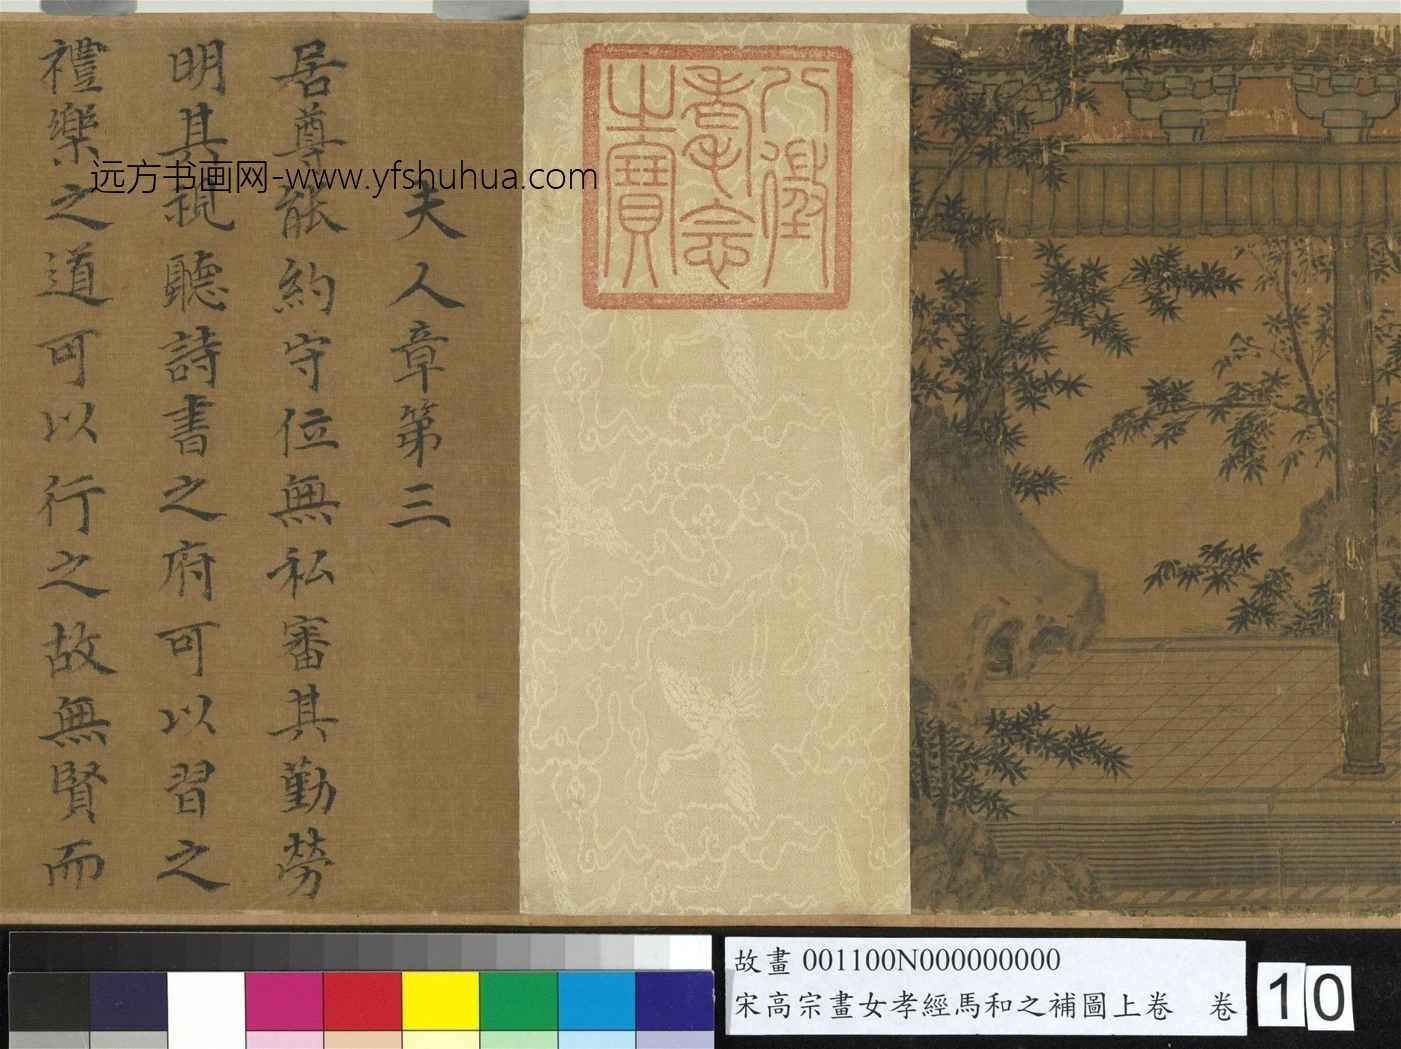 夫人章第三
居尊能約守位無私審其勤勞
明其視聽詩書之府可以習之
禮樂之道可以行之故無賢而
八徵耄念之寶
远方书画网-www.yfshuhua.com
故畫 001100N000000000
宋高宗畫女孝經馬和之補圖上卷 卷
10